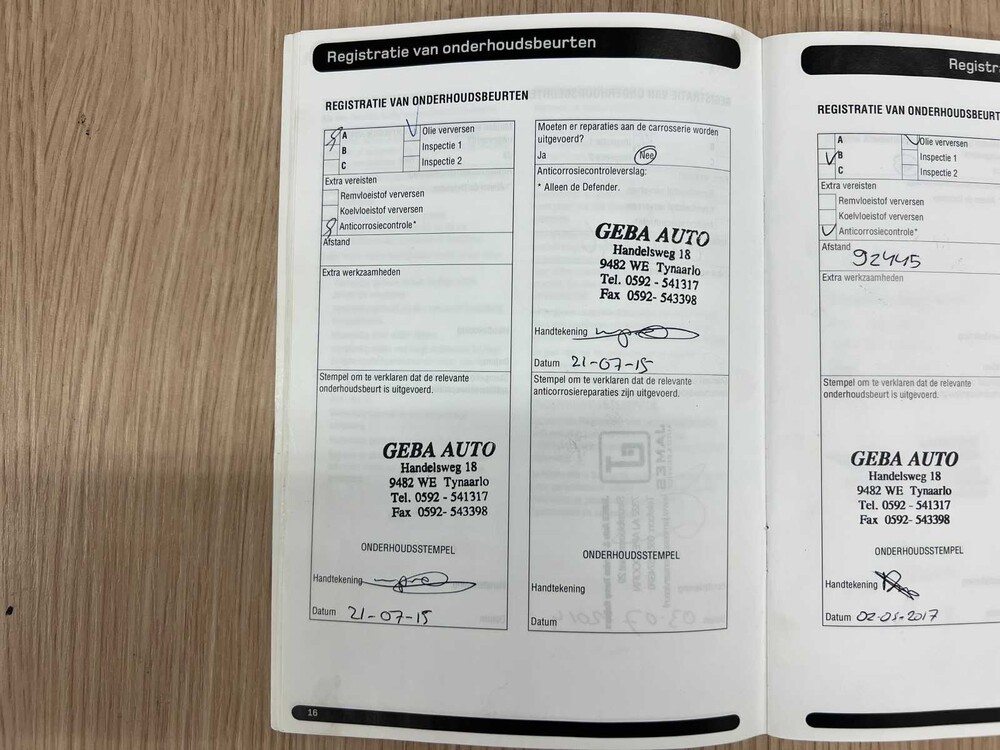 Registratie van onderhoudsbeurten
REGISTRATIE VAN ONDERHOUDSBEURTEN
A
B
C
Olie verversen
Inspectie 1
Inspectie 2
Extra vereisten
Remvloeistof verversen
Koelvloeistof verversen
Anticorrosiecontrole*
Afstand
Extra werkzaamheden
Stempel om te verklaren dat de relevante
onderhoudsbeurt is uitgevoerd.
GEBA AUTO
Handelsweg 18
9482 WE Tynaarlo
Tel. 0592 - 541317
Fax 0592- 543398
ONDERHOUDSSTEMPEL
Handtekening
Datum 21-07-15
Moeten er reparaties aan de carrosserie worden
uitgevoerd?
Ja Nee
Anticorrosiecontroleverslag:
* Alleen de Defender.
GEBA AUTO
Handelsweg 18
9482 WE Tynaarlo
Tel. 0592 - 541317
Fax 0592- 543398
Handtekening
Datum 21-07-15
Stempel om te verklaren dat de relevante
anticorrosiereparaties zijn uitgevoerd.
ONDERHOUDSSTEMPEL
Handtekening
Datum
16
Registr
REGISTRATIE VAN ONDERHOUDSBEURT
A
B
C
Olie verversen
Inspectie 1
Inspectie 2
Extra vereisten
Remvloeistof verversen
Koelvloeistof verversen
Anticorrosiecontrole*
Afstand 92445
Extra werkzaamheden
Stempel om te verklaren dat de relevante
onderhoudsbeurt is uitgevoerd.
GEBA AUTO
Handelsweg 18
9482 WE Tynaarlo
Tel. 0592 - 541317
Fax 0592- 543398
ONDERHOUDSSTEMPEL
Handtekening
Datum 02-05-2017